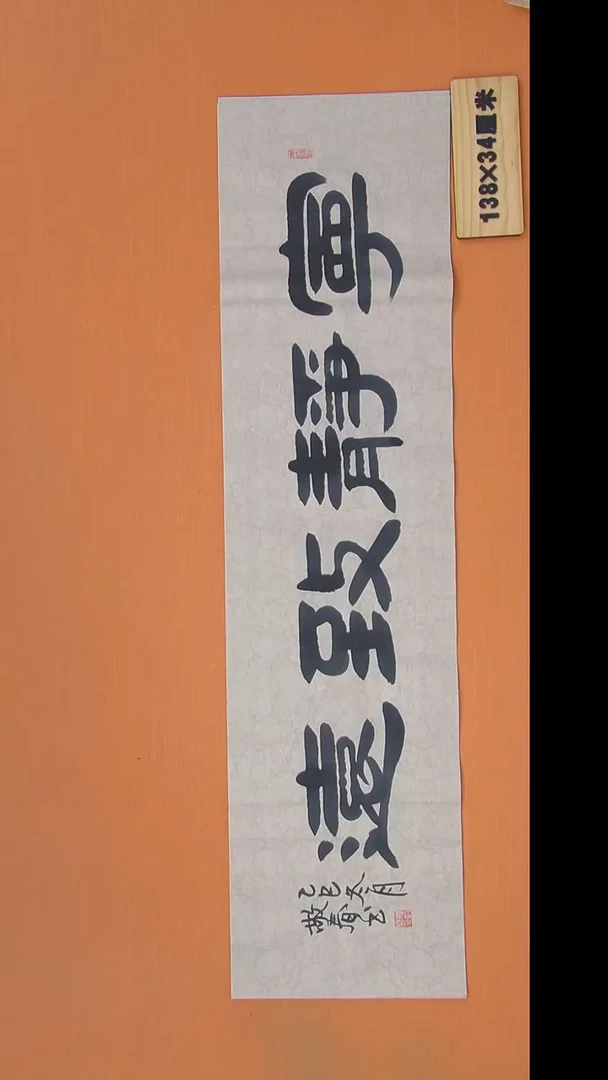 寧靜致遠
乙巳冬月
书
138×34厘米